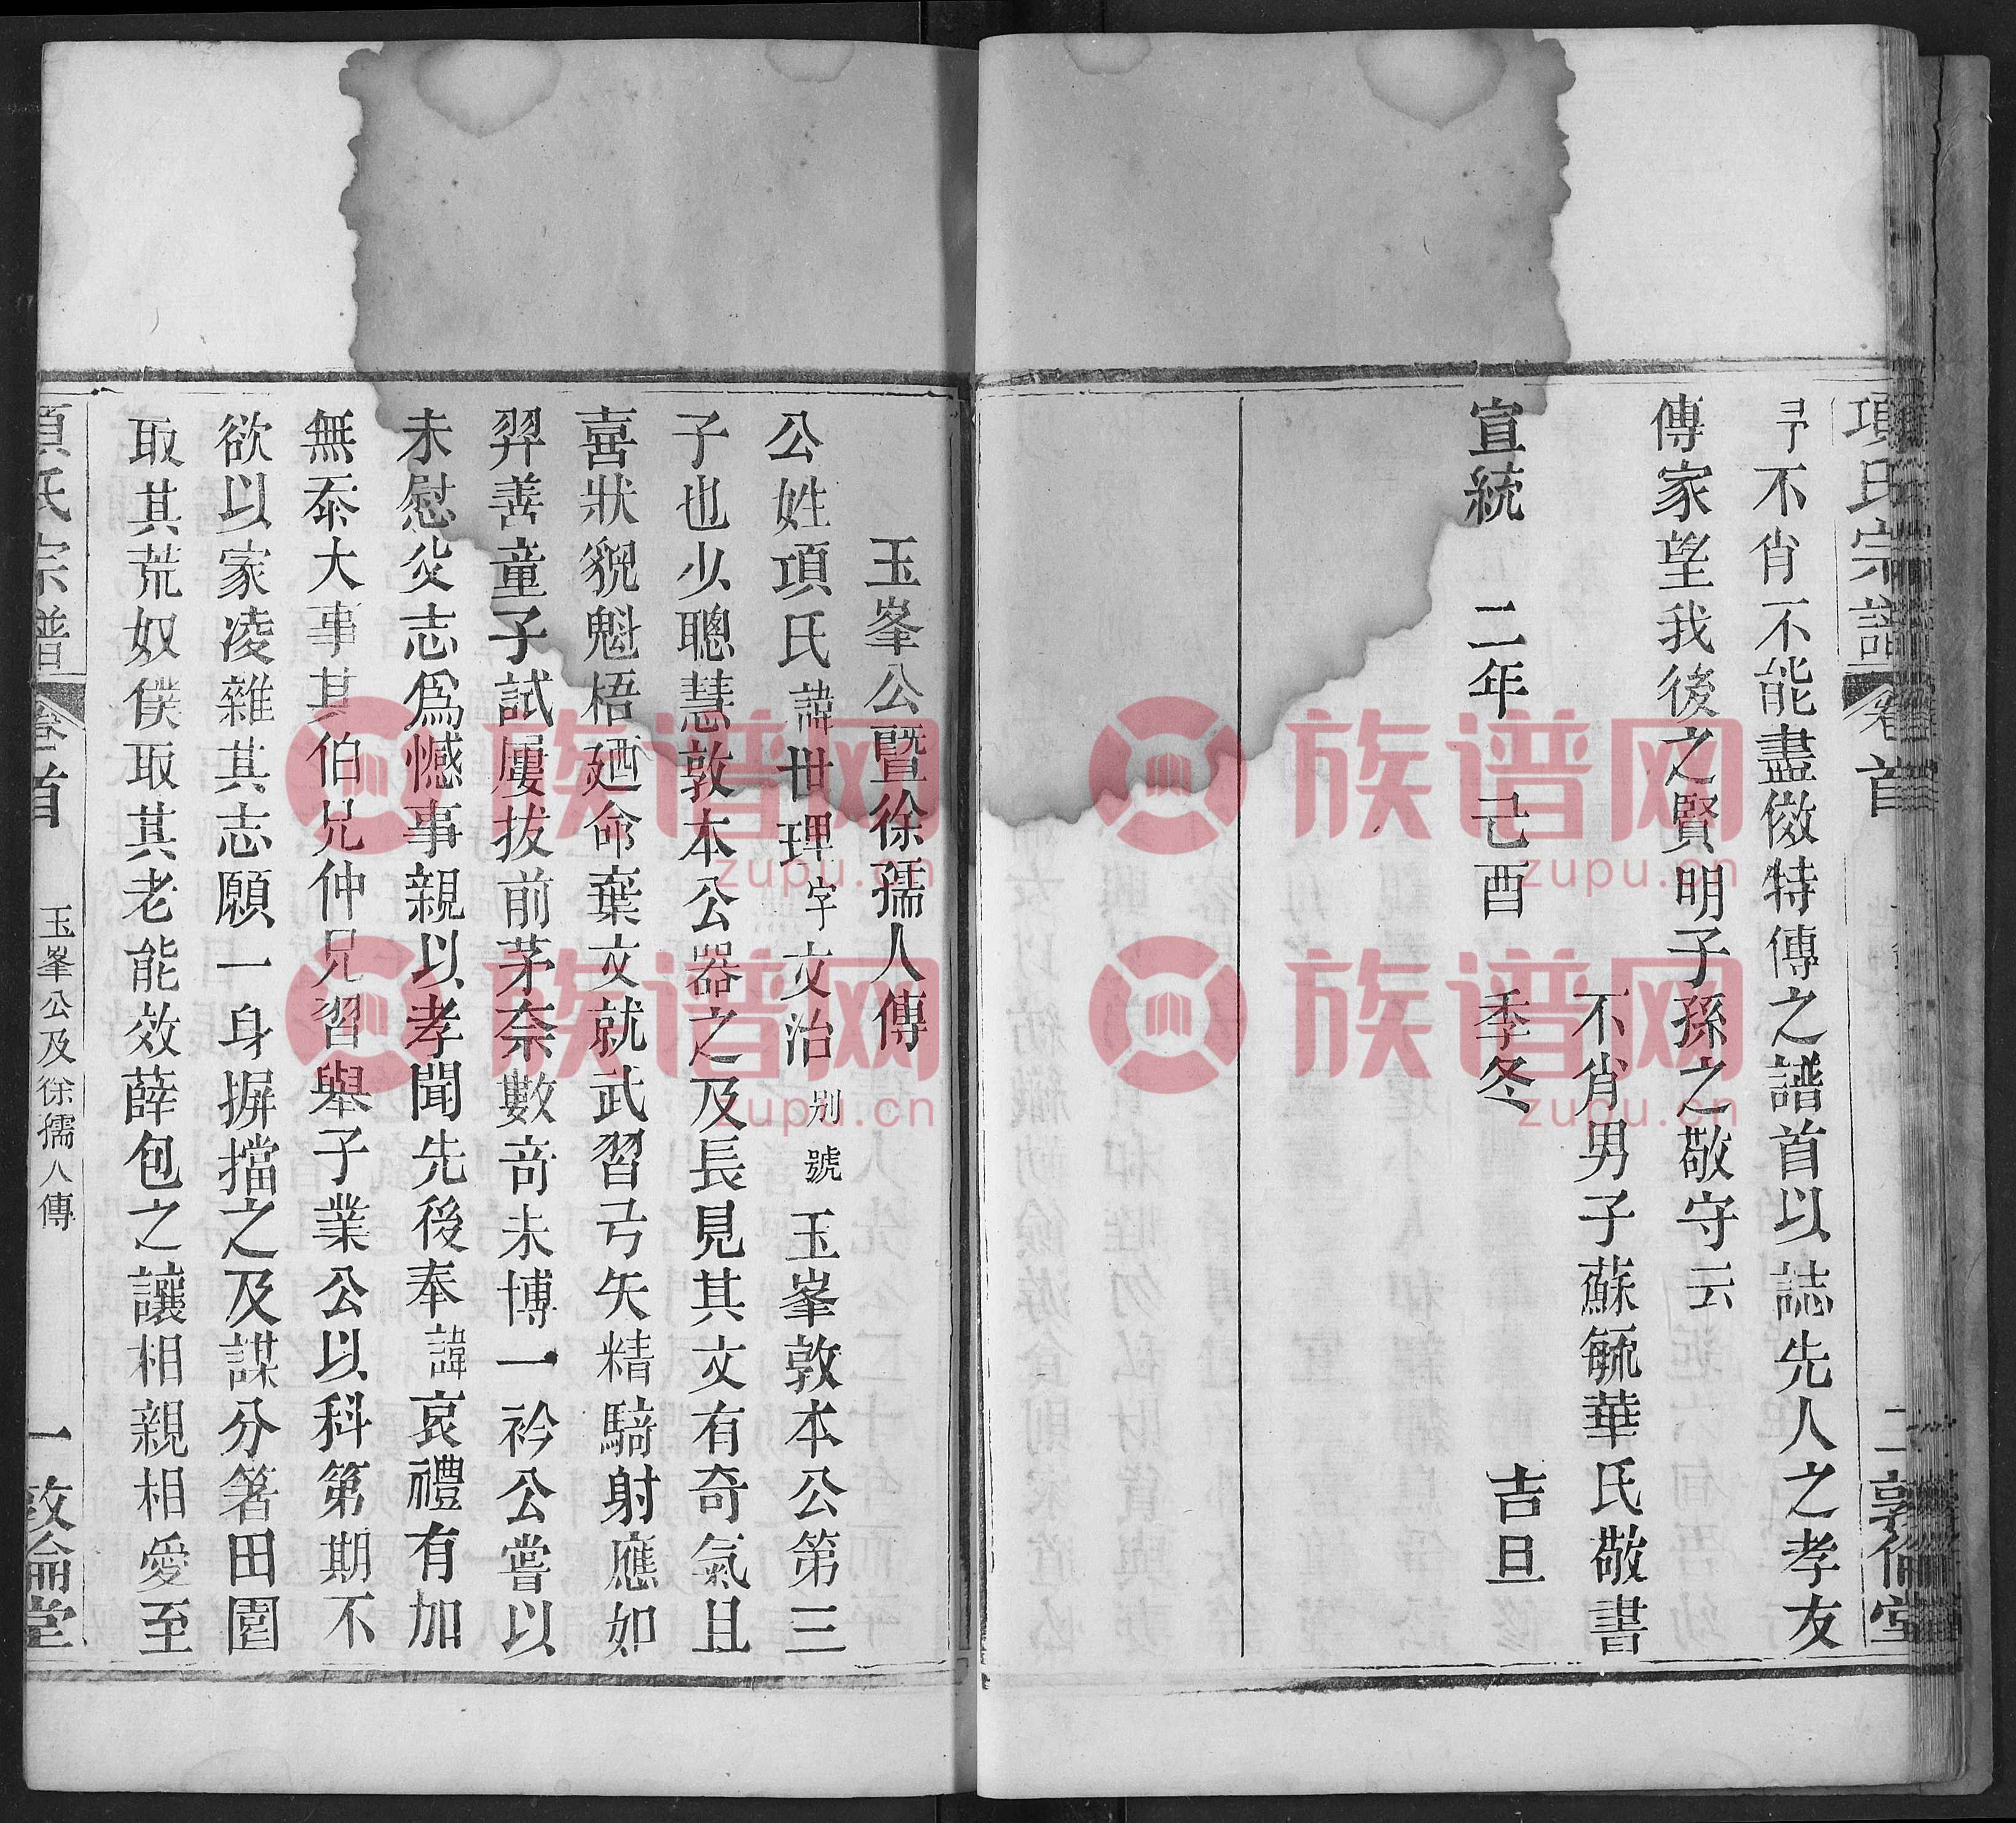 項氏宗譜 卷首 二 敦倫堂
予不肖不能盡倣特傳之譜首以誌先人之孝友
傳家望我後之賢明子孫之敬守云
不肖男子蘇毓華氏敬書
宣統 二年 己酉 季冬 吉旦
玉峯公暨徐孺人傳
公姓項氏諱世理字文治別號玉峯敦本公第三
子也少聰慧敦本公器之及長見其文有奇氣且
喜狀貌魁梧廼命棄文就武習弓矢精騎射應如
羿善童子試屢拔前茅奈數奇未博一衿公嘗以
未慰父志爲憾事親以孝聞先後奉諱哀禮有加
無忝大事其伯兄仲兄習舉子業公以科第期不
欲以家凌雜其志願一身摒擋之及謀分箸田園
取其荒奴僕取其老能效薛包之讓相親相愛至
項氏宗譜 卷首 玉峯公及徐孺人傳 一 敦倫堂
族谱网
zupu.cn
族谱网
zupu.cn
族谱网
zupu.cn
族谱网
zupu.cn